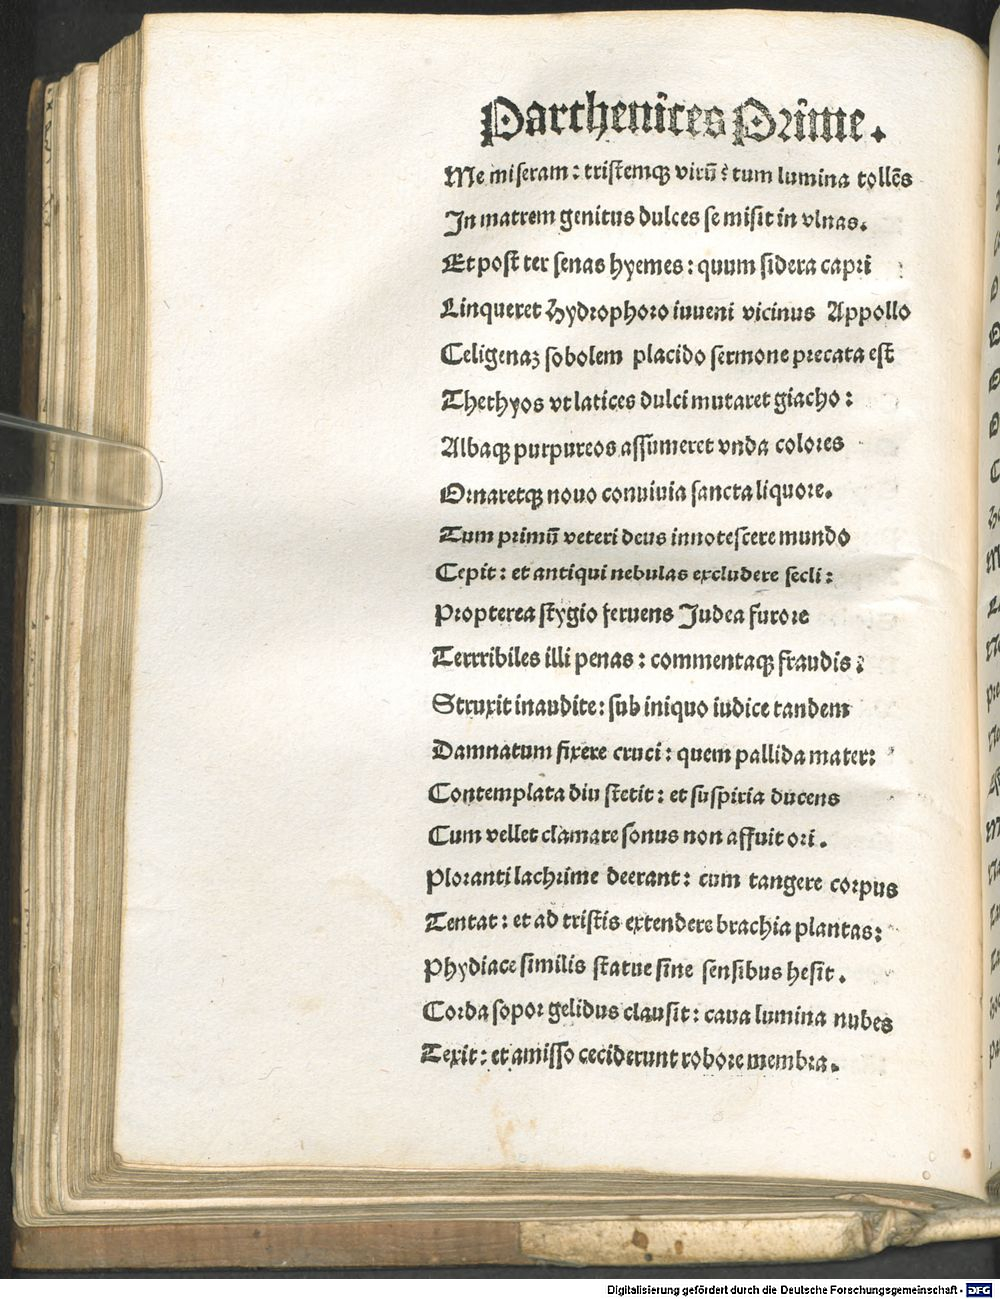 Parthenices Prime.
Me miseram: tristemqꝫ virū: tum lumina tollēs
In matrem genitus dulces se misit in vlnas.
Et post ter senas hyemes: quum sidera capri
Linqueret Hydrophoro iuueni vicinus Appollo
Celigenaꝫ sobolem placido sermone precata est
Thethyos vt latices dulci mutaret giacho:
Albaqꝫ purpureos assumeret vnda colores
Ornaretqꝫ nouo conuiuia sancta liquore.
Tum primū veteri deus innotescere mundo
Cepit: et antiqui nebulas excludere secli:
Propterea stygio feruens Judea furore
Terrribiles illi penas: commentaqꝫ fraudis:
Struxit inaudite: sub iniquo iudice tandem
Damnatum fixere cruci: quem pallida mater:
Contemplata diu stetit: et suspiria ducens
Cum vellet clamare sonus non affuit ori.
Ploranti lachrime deerant: cum tangere corpus
Tentat: et ad tristis extendere brachia plantas:
Phydiace similis statue sine sensibus hesit.
Corda sopor gelidus clausit: caua lumina nubes
Texit: et amisso ceciderunt robore membra.
Digitalisierung gefördert durch die Deutsche Forschungsgemeinschaft - DFG